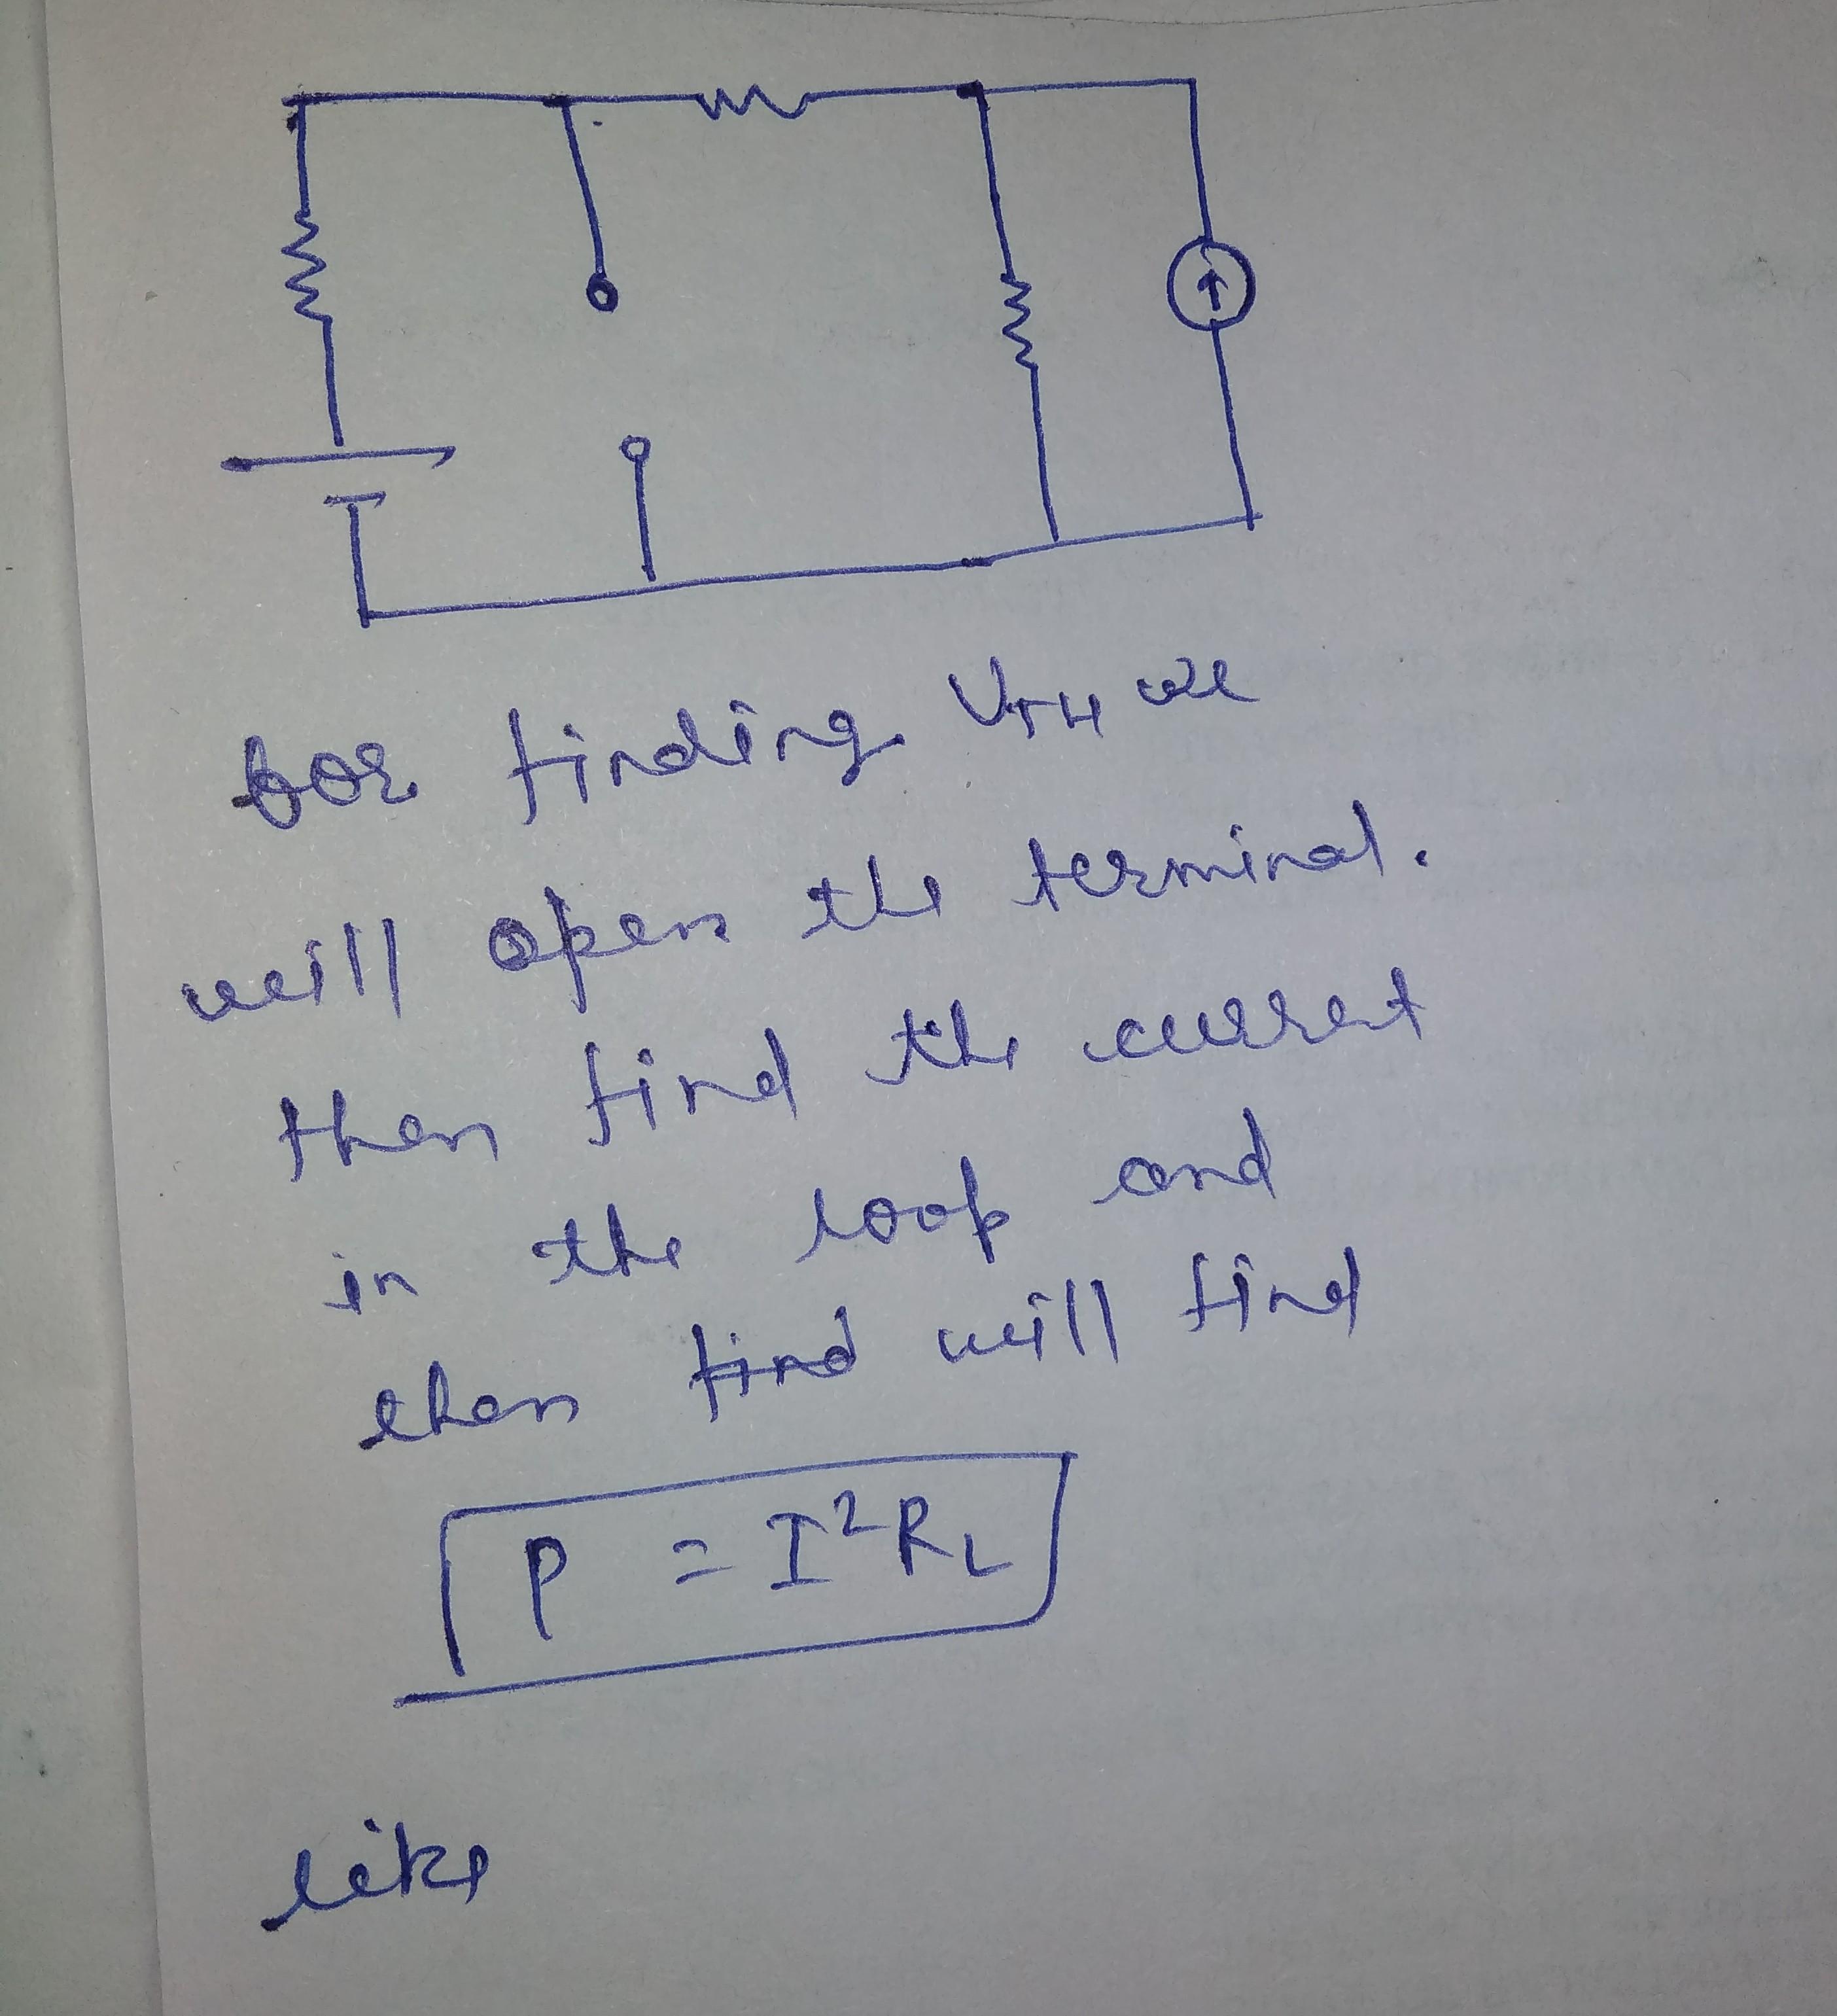 for finding VTH we
will open the terminal.
then find the current
in the loop and
then find will find
P = I²RL
like